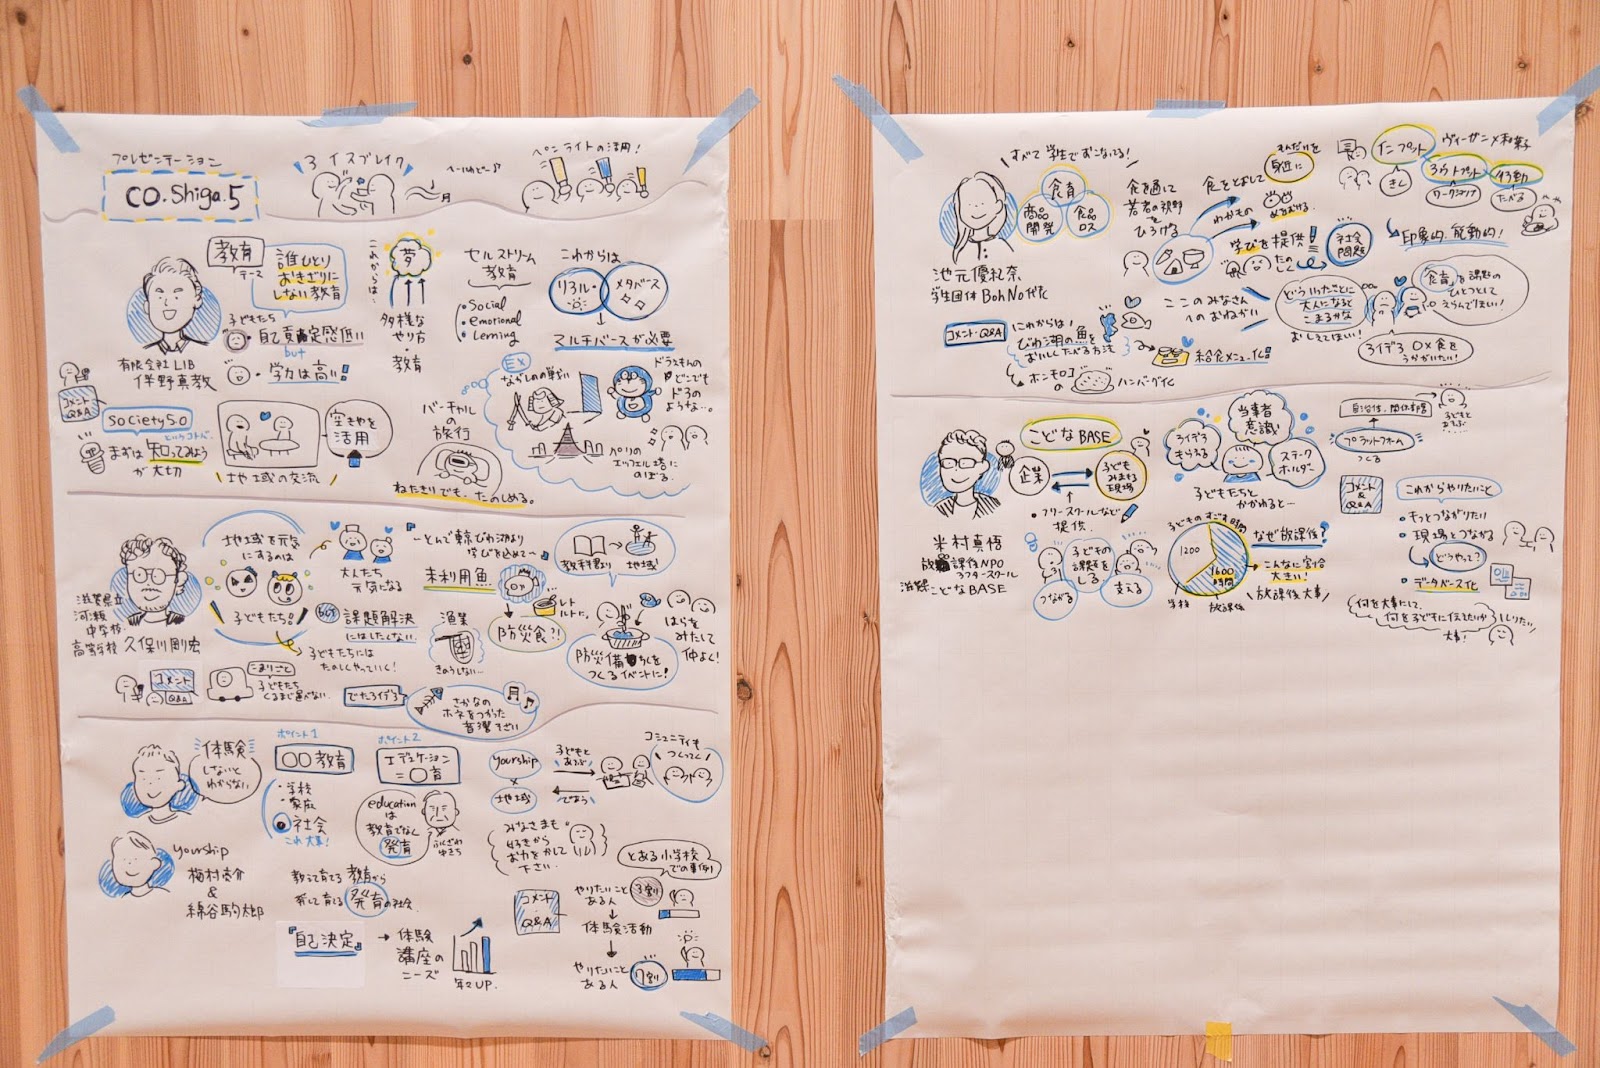 プレゼンテーション
CO.Shiga.5
アイスブレイク
ペンライトの活用！
教育
テーマ
誰ひとり
おきざりに
しない教育
子どもたち
自己肯定感低い
but
学力は高い！
有限会社LIB
伴野真教
コメント
Q&A
society5.0
まずは知ってみよう
というコトバ
が大切
地域の交流
空きやを
活用
これからは…
夢
多様な
やり方
・教育
セルストリーム
教育
・Social
・emotional
・Lerning
これからは
リアル
メタバース
マルチバースが必要
バーチャル
の旅行
ねたきりでも、たのしめる。
EX
ドラえもんの
どこでも
ドアの
ような…。
パリの
エッフェル塔に
のぼる。
滋賀県立
河瀬
中学校・
高等学校
久保川剛宏
地域を元気
にするのは
子どもたち！
大人たち
元気になる
課題解決
にはしたくない。
子どもたちには
たのしくやっていく！
コメント
Q&A
こまりごと
子どもたち
くるまじゃ運べない。
でたアイデア
さかなの
ホネをつかった
音選そざい
〜とんで東京びわ湖より
学びを込めて〜
未利用魚
漁業
きのうしない…
レト
ルトに。
防災食？！
教科書より
地域
はらを
みたして
仲よく！
防災備ちくを
つくるイベントに！
体験
しないと
わからない
yourship
梅村恭介
&
綿谷駒太郎
ポイント1
○○教育
・学校
・家庭
社会
これ大事！
ポイント2
エデュケーション
＝○育
education
は
教育でなく
発育
ふくざわ
ゆきち
教えて育てる教育から
発して育る発育の社会
『自己決定』
体験
講座の
ニーズ
年々UP.
yourship
×
地域
子どもと
あそぶ
であう
コミュニティも
つくってく
みなさまも
好きから
お力をかして
下さい。
コメント
Q&A
とある小学校
での事例
やりたいこと
ある人
3割
体験活動
やりたいこと
ある人
7割
すべて学生でおこなってる！
食育
商品
開発
食品
ロス
池元優礼奈
学生団体BohNo代表
食を通じて
若者の視野
を
ひろげる
食をとおして
わかもの
身近に
学びを提供
たのしく
社会
問題
インプット
きく
ヴィーガン×和菓子
アウトプット
ワークショップ
行動
たべる
印象的、能動的！
コメント・Q&A
これからは！
びわ湖の魚を
おいしくたべる方法
ホンモロコ
の
ハンバーグ化
給食メニュー化！
ここのみなさん
へのおねがい
どういったことに
大人になると
こまるかな
おしえてほしい！
食育を課題の
ひとつとして
えらんでほしい！
アイデア○×食を
うかがいたい！
こどなBASE
企業
子ども
みまもる
現場
・フリースクールなど
提供
米村真悟
放課後NPO
アフタースクール
滋賀・こどなBASE
子どもの
課題を
しる
つながる
支える
アイデア
もらえる
当事者
意識
ステーク
ホルダー
子どもたちと
かかわると…
子どものすごす時間
1200
1600
時間
学校
放課後
なぜ放課後？
こんなに割合
大きい！
放課後大事
自治体、関係部署
プラットフォーム
つくる
コメント
&
Q&A
これからやりたいこと
・もっとつながりたい
・現場とつながる
どうやって？
・データベース化
何を大事にして、
何を子どもに伝えたいか
しりたい
大事！